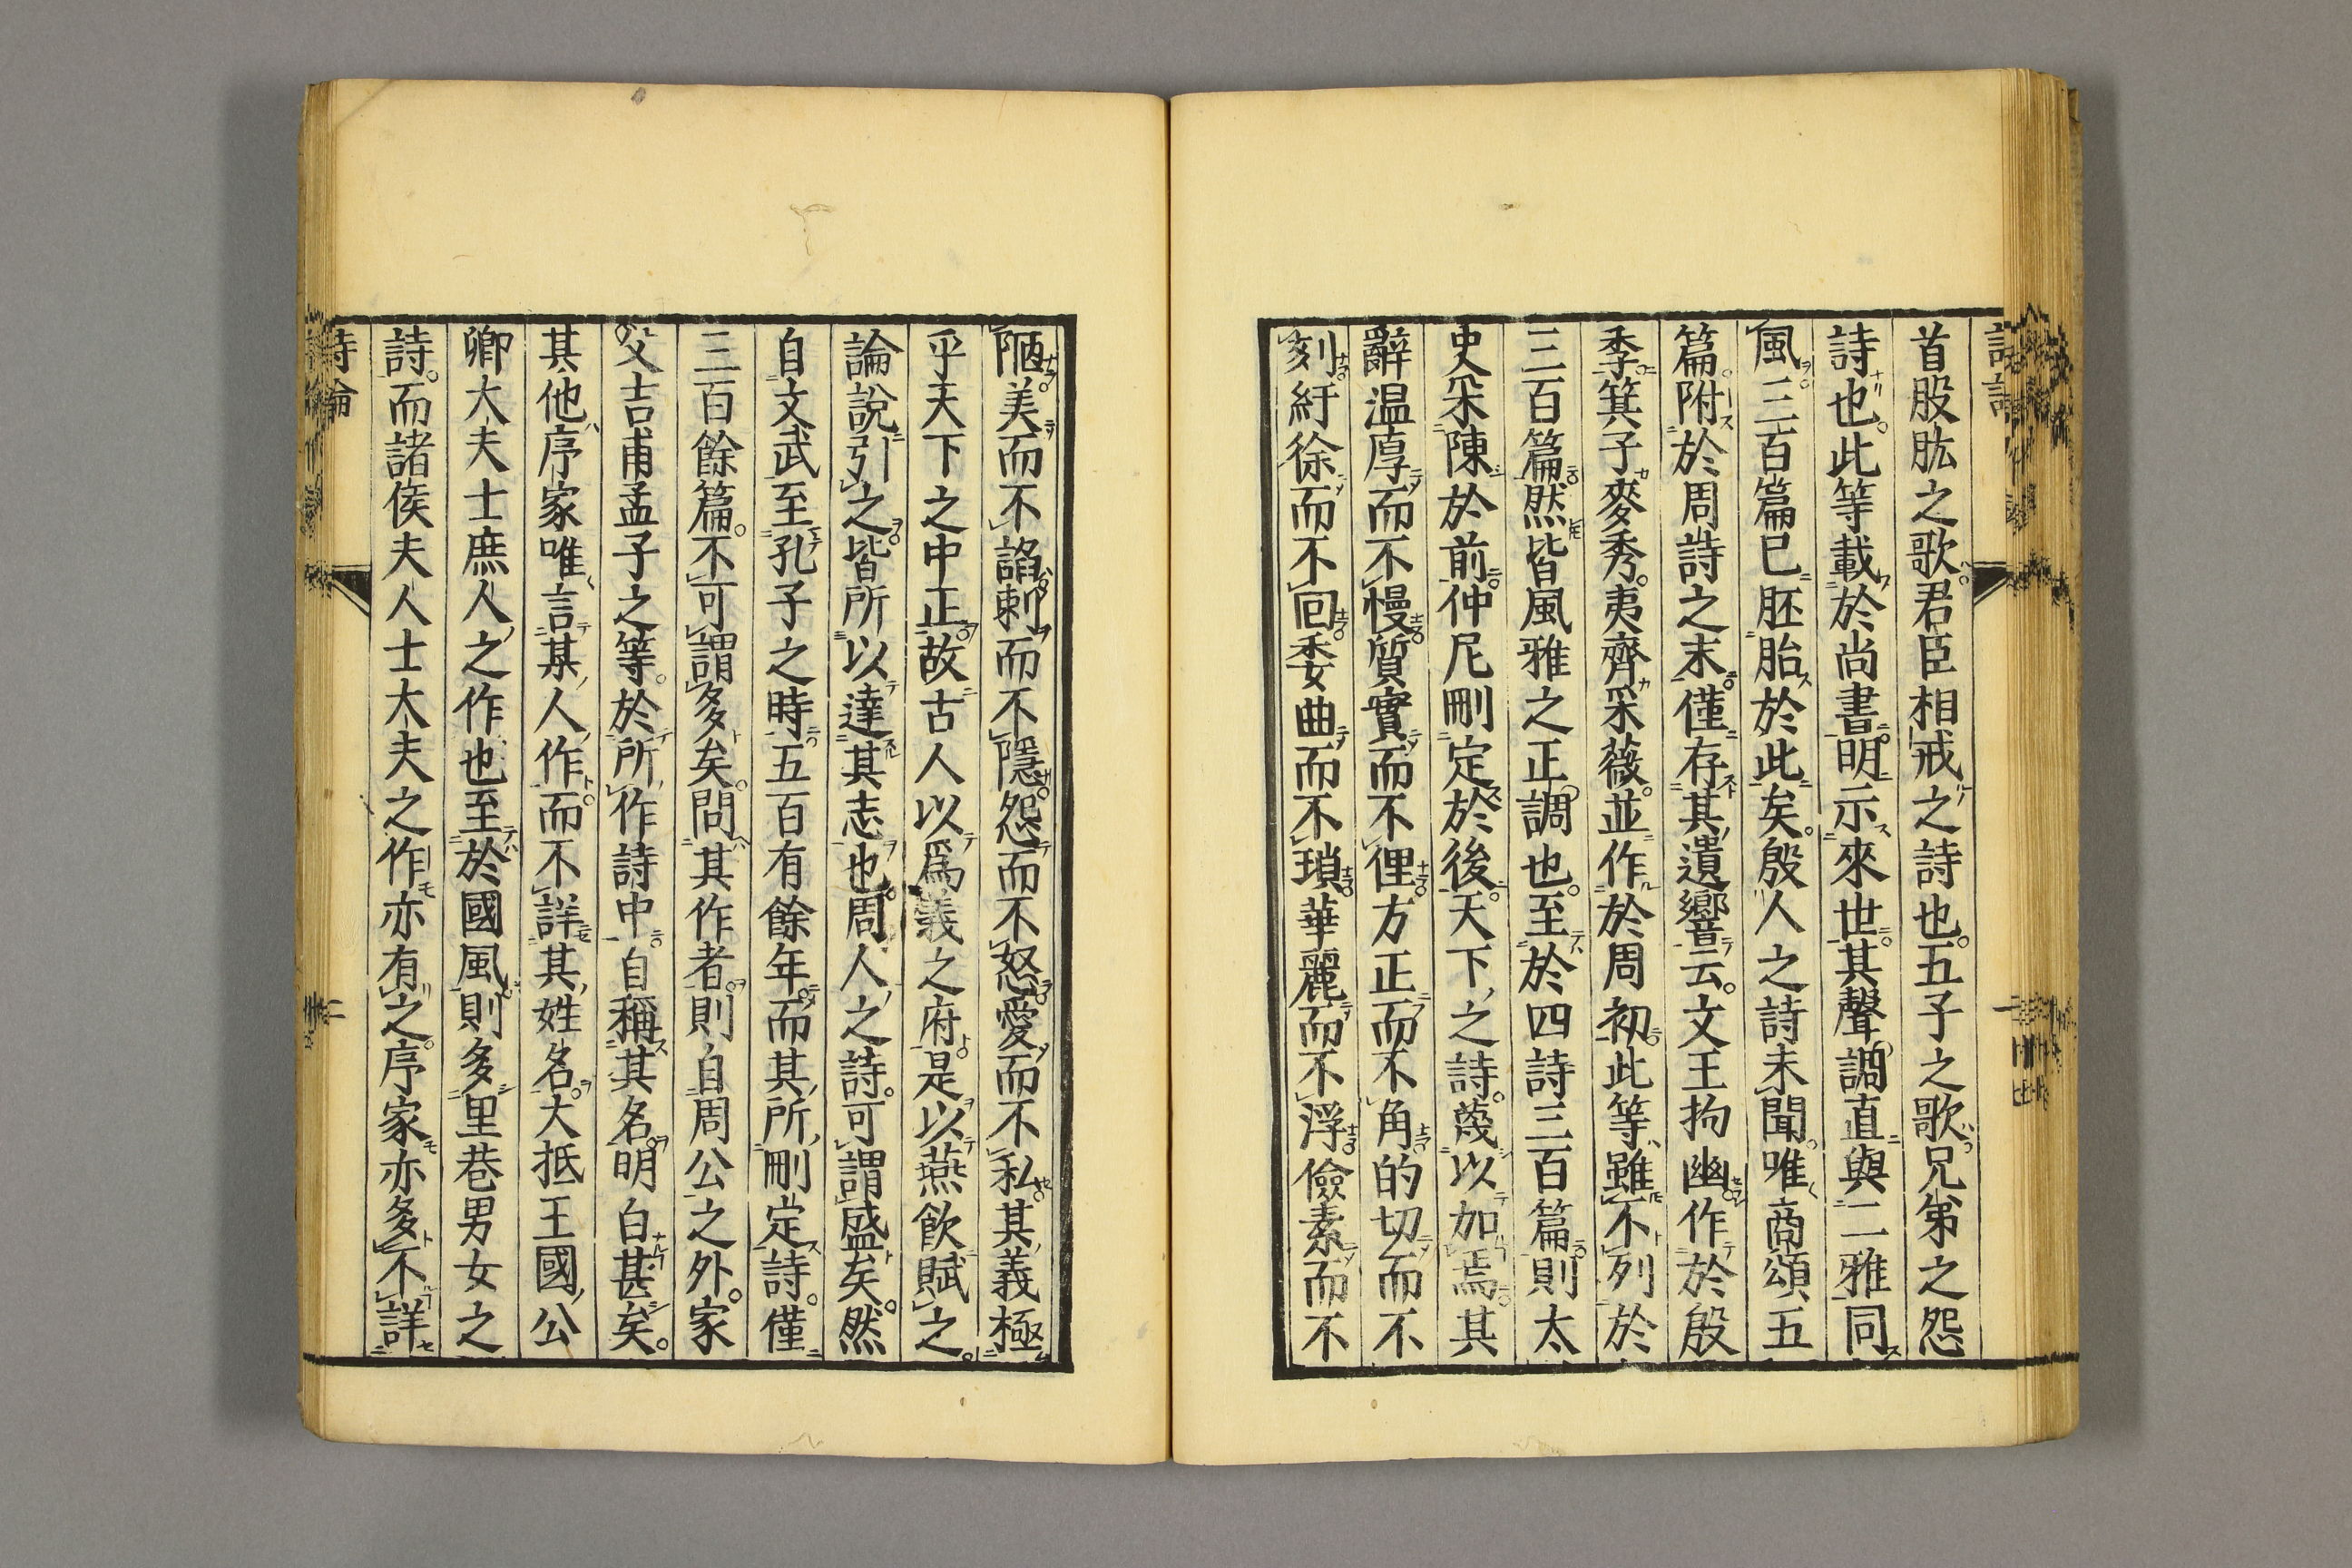 首股肱之歌君臣相戒之詩也五子之歌兄弟之怨
詩也此等載於尚書明示來世其聲調直與二雅同
風三百篇已胚胎於此矣殷人之詩未聞唯商頌五
篇附於周詩之末僅存其遺響云文王拘幽作於殷
季箕子麥秀夷齊采薇並作於周初此等雖不列於
三百篇然皆風雅之正調也至於四詩三百篇則太
史采陳於前仲尼刪定於後天下之詩蔑以加焉其
辭温厚而不慢質實而不俚方正而不角的切而不
刻紆徐而不回委曲而不瑣華麗而不浮儉素而不
陋美而不諂刺而不隱怨而不怒愛而不私其義極
乎天下之中正故古人以爲義之府是以燕飲賦之
論說引之皆所以達其志也周人之詩可謂盛矣然
自文武至孔子之時五百有餘年而其所刪定詩僅
三百餘篇不可謂多矣問其作者則自周公之外家
父吉甫孟子之等於所作詩中自稱其名明白甚矣
其他序家唯言某人作而不詳其姓名大抵王國公
卿大夫士庶人之作也至於國風則多里巷男女之
詩而諸侯夫人士大夫之作亦有之序家亦多不詳
詩論
二